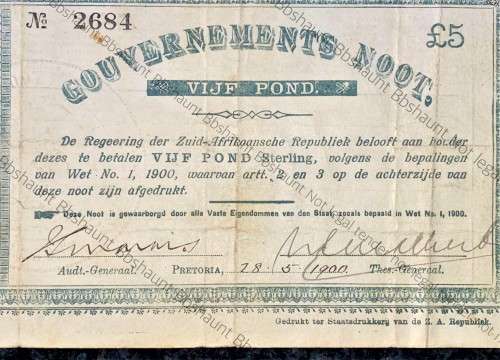 № 2684
£5
GOUVERNEMENTS NOOT,
VIJF POND.
De Regeering der Zuid-Afrikaansche Republiek belooft aan houder
dezes te betalen VIJF POND Sterling, volgens de bepalingen
van Wet No. 1, 1900, waarvan artt. 2 en 3 op de achterzijde van
deze noot zijn afgedrukt.
Deze Noot is gewaarborgd door alle Vaste Eigendommen van den Staat, zooals bepaald in Wet No. 1, 1900.
Audt.-Generaal. PRETORIA, 28 5 1900. Thes.-Generaal.
Gedrukt ter Staatsdrukkery van de Z. A. Republiek.
Bbshaunt Not legal tender